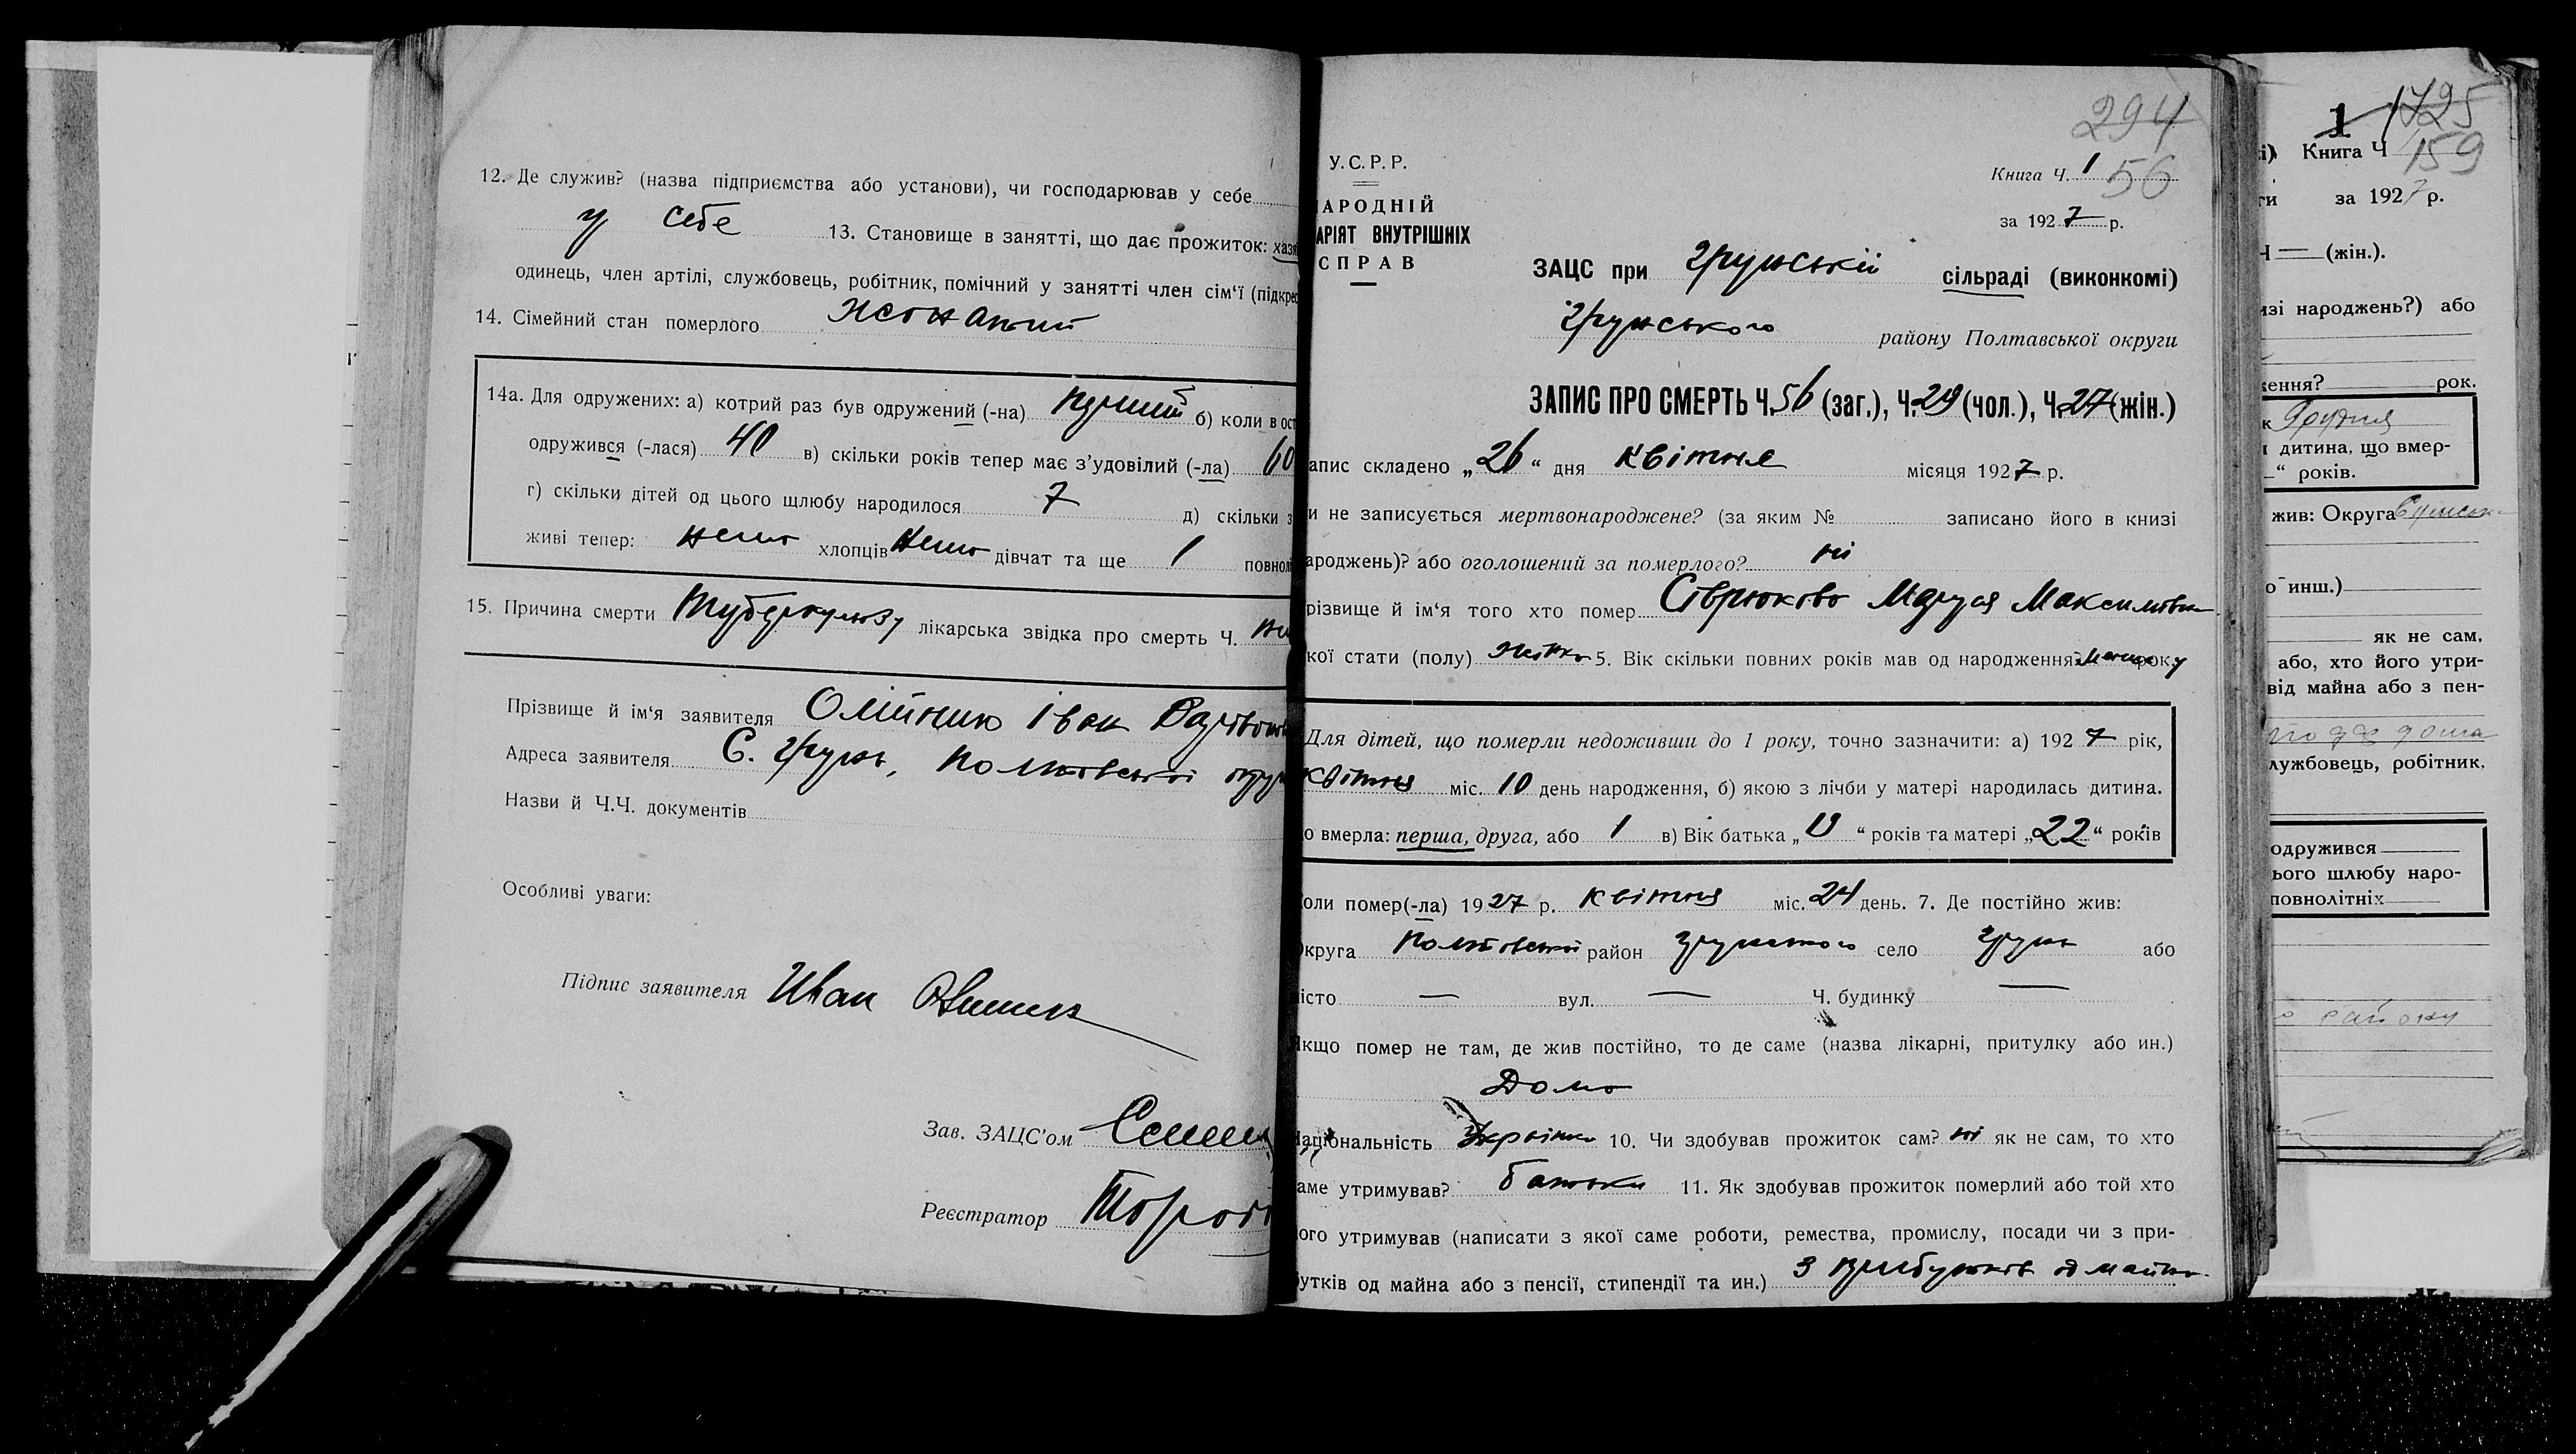 12. Де служив? (назва підприємства або установи), чи господарював у себе
у себе 13. Становище в занятті, що дає прожиток: хазя
одинець, член артілі, службовець, робітник, помічний у занятті член сім‘ї (підкрес
14. Сімейний стан померлого жонатий
14а. Для одружених: а) котрий раз був одружений (-на) перший б) коли в ост
одружився (-лася) 40 в) скільки років тепер має з’удовілий (-ла) 60
г) скільки дітей од цього щлюбу народилося 7 д) скільки з
живі тепер: нема хлопців нема дівчат та ще 1 повнолі
15. Причина смерти Туберкульозу лікарська звідка про смерть Ч.
Прізвище й ім‘я заявителя Олійник Іван
Адреса заявителя С. Грунь, Полтавської округи
Назви й Ч.Ч. документів
Особливі уваги:
Підпис заявителя Иван
Зав. ЗАЦС’ом
Реєстратор
294
У.С.Р.Р.
АРОДНІЙ
АРІЯТ ВНУТРІШНІХ
СПРАВ
Книга Ч. 1
56
за 1927 р.
ЗАЦС при Грунській сільраді (виконкомі)
Грунського району Полтавської округи
ЗАПИС ПРО СМЕРТЬ Ч. 56 (заг.), Ч. 29 (чол.), Ч. 27 (жін.)
апис складено „26“ дня квітня місяця 1927 р.
и не записується мертвонароджене? (за яким № записано його в книзі
ароджень)? або оголошений за померлого? ні
різвище й ім‘я того хто помер Маруся Максимівна
кої стати (полу) жінка 5. Вік скільки повних років мав од народження? менше року
Для дітей, що померли недоживши до 1 року, точно зазначити: а) 1927 рік,
квітня міс. 10 день народження, б) якою з лічби у матері народилась дитина.
о вмерла: перша, друга, або 1 в) Вік батька „19“ років та матері „22“ років
оли помер(-ла) 1927 р. квітня міс. 24 день. 7. Де постійно жив:
круга Полтавської район Грунського село Грунь або
істо — вул. — Ч. будинку —
кщо помер не там, де жив постійно, то де саме (назва лікарні, притулку або ин.)
Дома
Національність Українка 10. Чи здобував прожиток сам? ні як не сам, то хто
аме утримував? батьки 11. Як здобував прожиток померлий або той хто
ого утримував (написати з якої саме роботи, ремества, промислу, посади чи з при-
утків од майна або з пенсії, стипендії та ин.) З прибутків од майна
1 1725
і) Книга Ч 159
ги за 1927 р.
Ч — (жін.).
изі народжень?) або
ження? рок.
к Грудня
дитина, що вмер-
—“ років.
жив: Округа Сумськ
о инш.)
як не сам,
або, хто його утри-
від майна або з пен-
лужбовець, робітник,
одружився
ього шлюбу наро-
повнолітніх
району